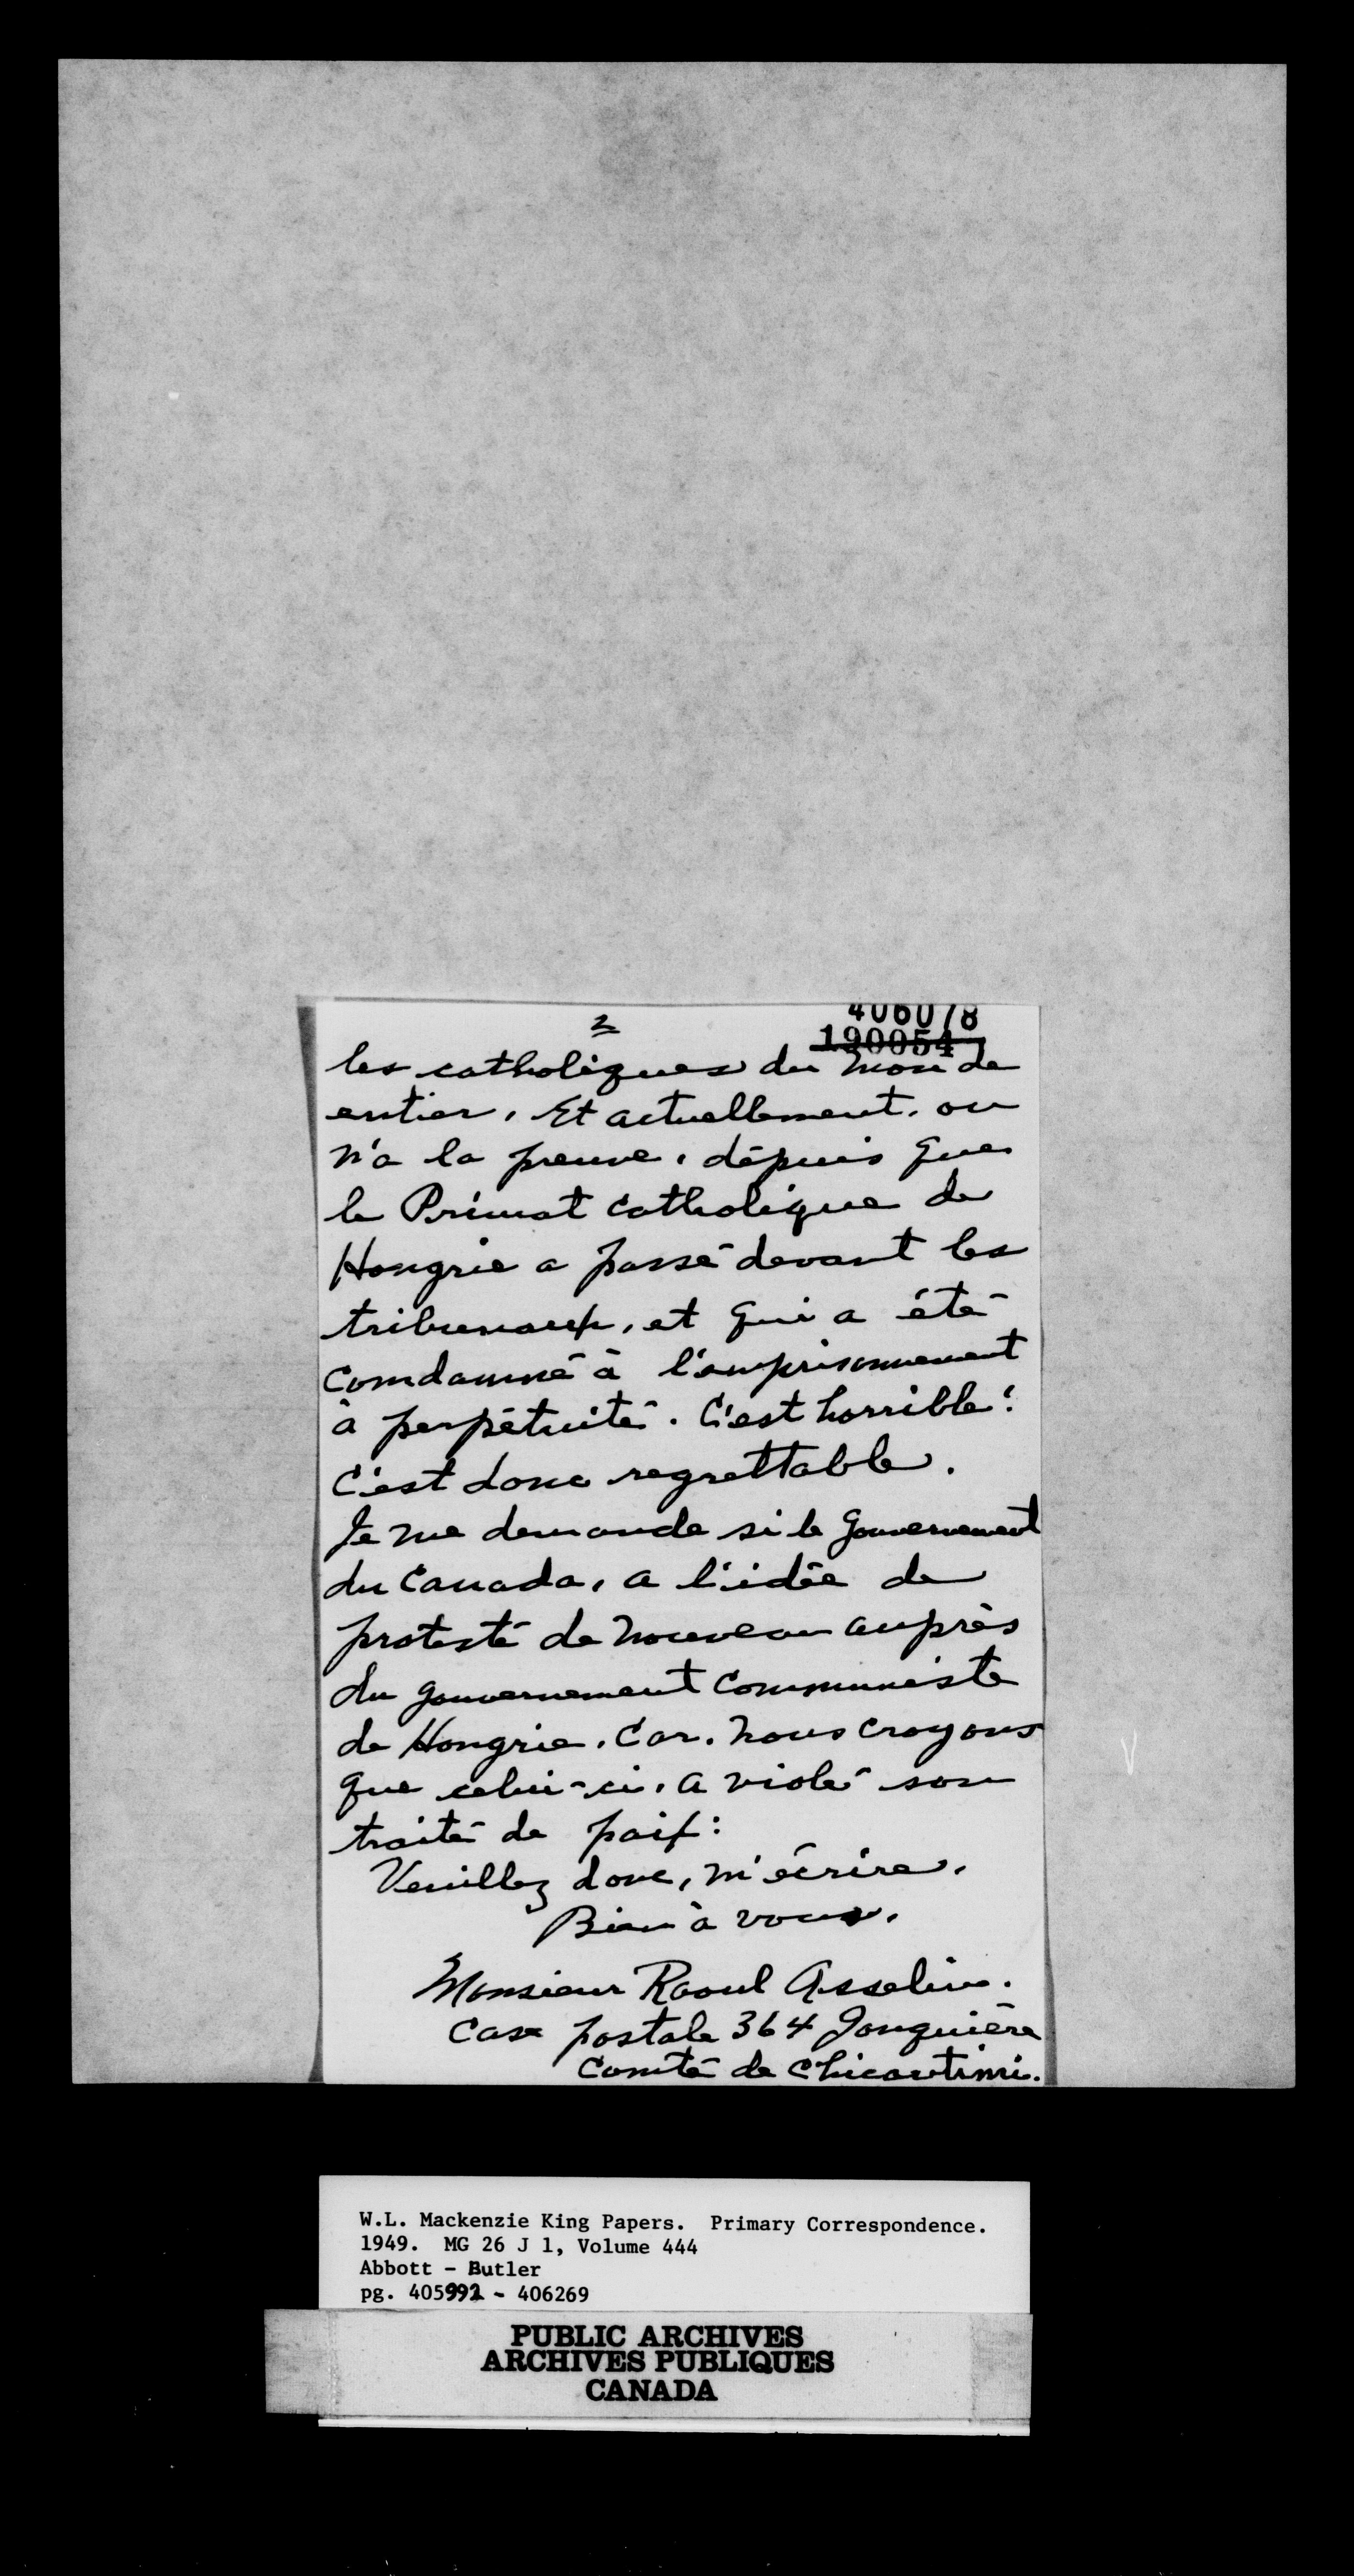 2
406078
190054
les catholiques du monde
entier. Et actuellement. on
n'a la preuve. dépuis que
le Primat catholique de
Hongrie a passé devant les
tribunaux, et qui a été
comdamné à l'emprisonnement
à perpétuité. C'est horrible!
C'est donc regrettable.
Je me demande si le Gouvernement
du Canada, a l'idée de
protesté de nouveau auprès
du gouvernement communiste
de Hongrie. Car. nous croyons
que celui-ci. a violé son
traité de paix:
Veuillez donc, m'écrire.
Bien à vous.
Monsieur Raoul Asselin.
Case postale 364 Jonquière
Comté de Chicoutimi.
W.L. Mackenzie King Papers. Primary Correspondence.
1949. MG 26 J 1, Volume 444
Abbott - Butler
pg. 405992 - 406269
PUBLIC ARCHIVES
ARCHIVES PUBLIQUES
CANADA